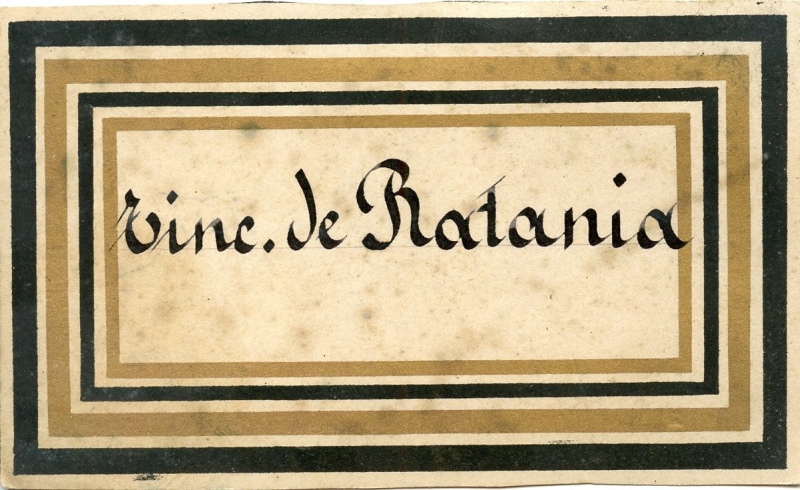 Tinc. de Ratania